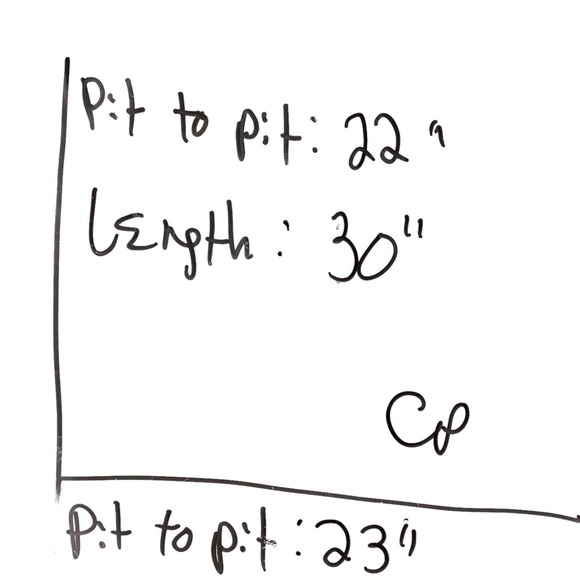 Pit to pit: 22"
Length: 30"
Pit to pit: 23"